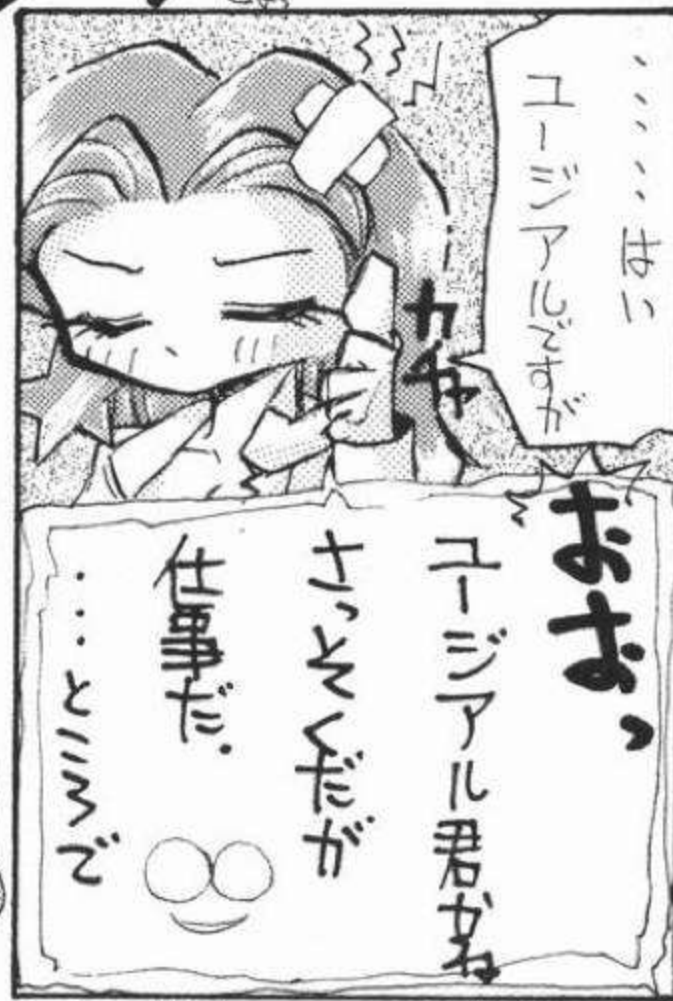 ・・・・・はい
ユージアルですが
カチャ
おおっ
ユージアル君かね
さっそくだが
仕事だ.
・・・ところで